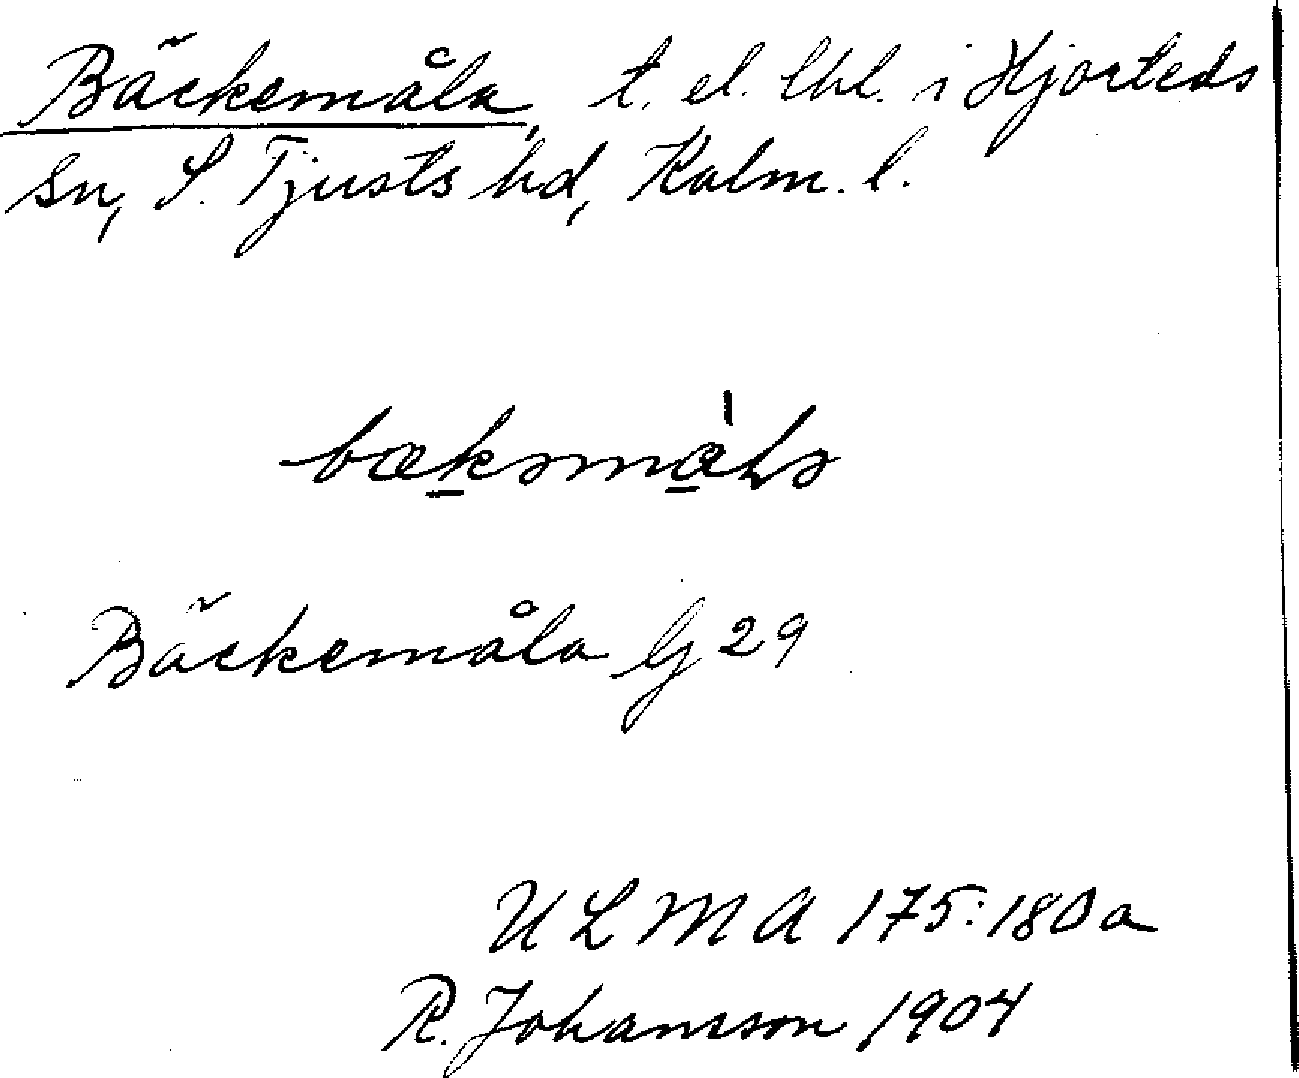 Bäckemåla, t. el. lht. i Hjorteds
sn, S. Tjusts hd, Kalm. l.
Bäckemåla G 29
ULMA 175:180a
R. Johansson 1904